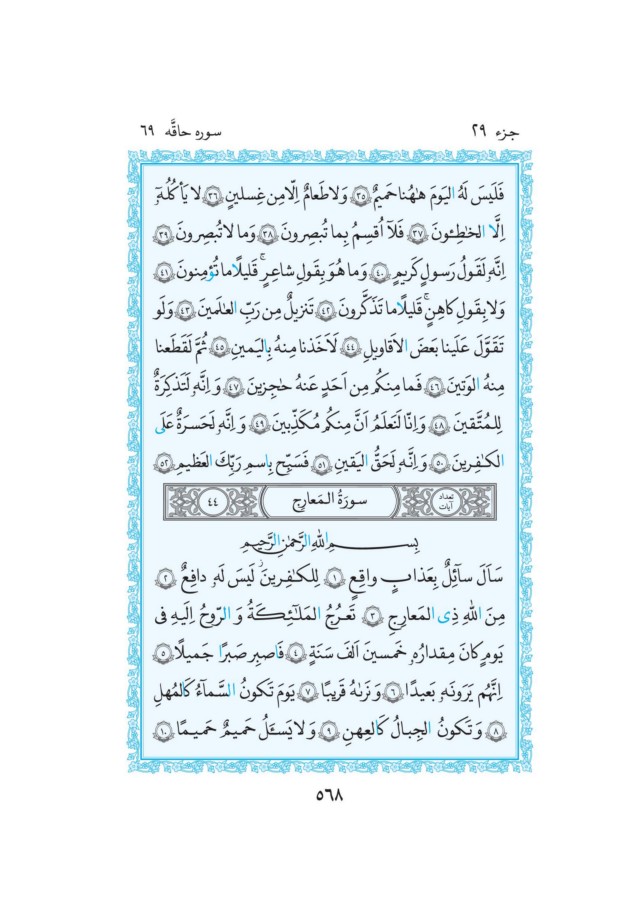 جزء ۲۹
سوره حاقَّه ۶۹
فَلَيسَ لَهُ اليَومَ هٰهُنا حَميمٌ ﴿۳۵﴾ وَلا طَعامٌ اِلّا مِن غِسلينٍ ﴿۳۶﴾ لا يَأكُلُهٗٓ
اِلَّا الخٰطِـٔونَ ﴿۳۷﴾ فَلَآ اُقسِمُ بِما تُبصِرونَ ﴿۳۸﴾ وَما لا تُبصِرونَ ﴿۳۹﴾
اِنَّهٗ لَقَولُ رَسولٍ كَريمٍ ﴿۴۰﴾ وَما هُوَ بِقَولِ شاعِرٍ ۚ قَليلًا ما تُؤمِنونَ ﴿۴۱﴾
وَلا بِقَولِ كاهِنٍ ۚ قَليلًا ما تَذَكَّرونَ ﴿۴۲﴾ تَنزيلٌ مِن رَبِّ العٰلَمينَ ﴿۴۳﴾ وَلَو
تَقَوَّلَ عَلَينا بَعضَ الاَقاويلِ ﴿۴۴﴾ لَاَخَذنا مِنهُ بِاليَمينِ ﴿۴۵﴾ ثُمَّ لَقَطَعنا
مِنهُ الوَتينَ ﴿۴۶﴾ فَما مِنكُم مِن اَحَدٍ عَنهُ حٰجِزينَ ﴿۴۷﴾ وَ اِنَّهٗ لَتَذكِرَةٌ
لِلمُتَّقينَ ﴿۴۸﴾ وَاِنّا لَنَعلَمُ اَنَّ مِنكُم مُكَذِّبينَ ﴿۴۹﴾ وَ اِنَّهٗ لَحَسرَةٌ عَلَى
الكٰفِرينَ ﴿۵۰﴾ وَ اِنَّهٗ لَحَقُّ اليَقينِ ﴿۵۱﴾ فَسَبِّح بِاسمِ رَبِّكَ العَظيمِ ﴿۵۲﴾
تعداد آیات
سورَةُ المَعارِج
۴۴
بِسـمِ اللّٰهِ الرَّحمٰنِ الرَّحيم
سَاَلَ سآئِلٌ بِعَذابٍ واقِعٍ ﴿۱﴾ لِلكٰفِرينَ لَيسَ لَهٗ دافِعٌ ﴿۲﴾
مِنَ اللّٰهِ ذِى المَعارِجِ ﴿۳﴾ تَعرُجُ المَلٰٓئِكَةُ وَ الرّوحُ اِلَيهِ فى
يَومٍ كانَ مِقدارُهٗ خَمسينَ اَلفَ سَنَةٍ ﴿۴﴾ فَاصبِر صَبرًا جَميلًا ﴿۵﴾
اِنَّهُم يَرَونَهٗ بَعيدًا ﴿۶﴾ وَ نَرٰىهُ قَريبًا ﴿۷﴾ يَومَ تَكونُ السَّمآءُ كَالمُهلِ
﴿۸﴾ وَ تَكونُ الجِبالُ كَالعِهنِ ﴿۹﴾ وَ لا يَسـَٔلُ حَميمٌ حَميمًا ﴿۱۰﴾
۵۶۸